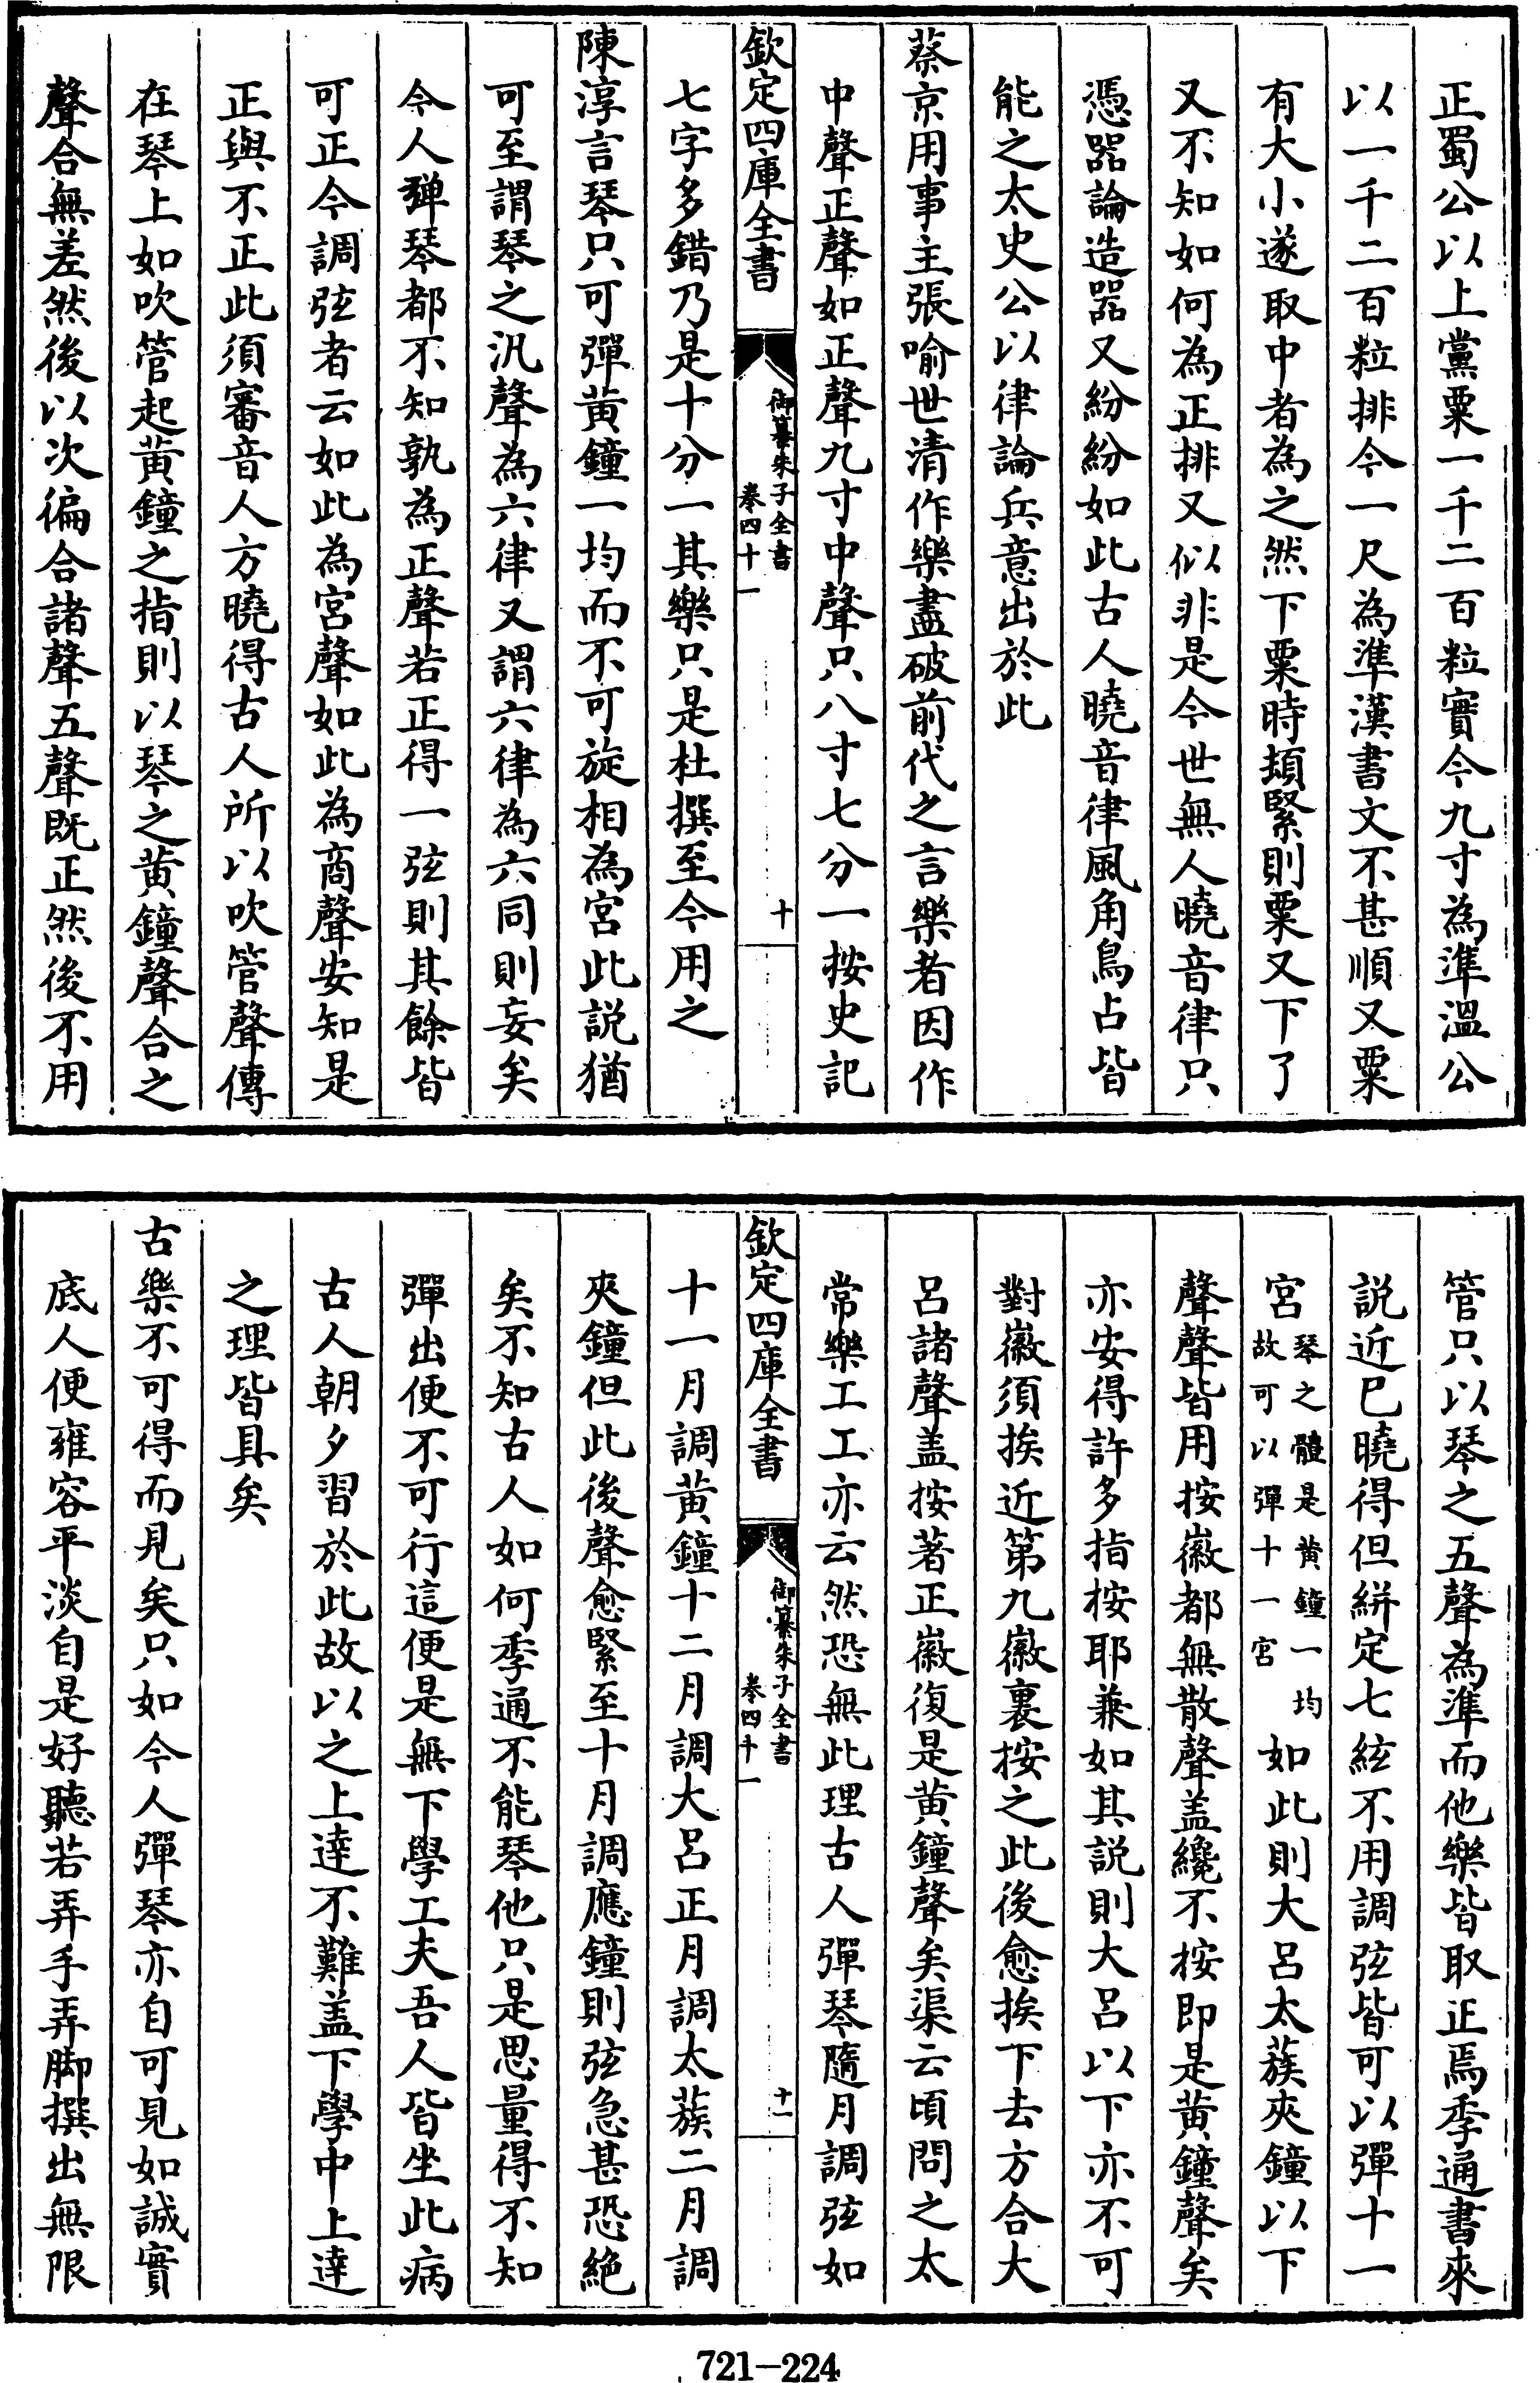 正蜀公以上黨粟一千二百粒實今九寸為準溫公
以一千二百粒排今一尺為準漢書文不甚順又粟
有大小遂取中者為之然下粟時頓緊則粟又下了
又不知如何為正排又似非是今世無人曉音律只
憑器論造器又紛紛如此古人曉音律風角鳥占皆
能之太史公以律論兵意出於此
蔡京用事主張喻世清作樂盡破前代之言樂者因作
中聲正聲如正聲九寸中聲只八寸七分一按史記
欽定四庫全書
御纂朱子全書
卷四十一
十
七字多錯乃是十分一其樂只是杜撰至今用之
陳淳言琴只可彈黃鐘一均而不可旋相為宮此説猶
可至謂琴之汎聲為六律又謂六律為六同則妄矣
今人彈琴都不知孰為正聲若正得一弦則其餘皆
可正今調弦者云如此為宮聲如此為商聲安知是
正與不正此須審音人方曉得古人所以吹管聲傳
在琴上如吹管起黃鐘之指則以琴之黃鐘聲合之
聲合無差然後以次徧合諸聲五聲既正然後不用
管只以琴之五聲為準而他樂皆取正焉季通書來
説近已曉得但絣定七絃不用調弦皆可以彈十一
宮琴之體是黃鐘一均故可以彈十一宮如此則大呂太蔟夾鐘以下
聲聲皆用按徽都無散聲盖纔不按即是黃鐘聲矣
亦安得許多指按耶兼如其説則大呂以下亦不可
對徽須挨近第九徽裏按之此後愈挨下去方合大
呂諸聲盖按著正徽復是黃鐘聲矣渠云頃問之太
常樂工工亦云然恐無此理古人彈琴隨月調弦如
欽定四庫全書
御纂朱子全書
卷四十一
十一
十一月調黃鐘十二月調大呂正月調太蔟二月調
夾鐘但此後聲愈緊至十月調應鐘則弦急甚恐絶
矣不知古人如何季通不能琴他只是思量得不知
彈出便不可行這便是無下學工夫吾人皆坐此病
古人朝夕習於此故以之上達不難盖下學中上達
之理皆具矣
古樂不可得而見矣只如今人彈琴亦自可見如誠實
底人便雍容平淡自是好聽若弄手弄脚撰出無限
721—224